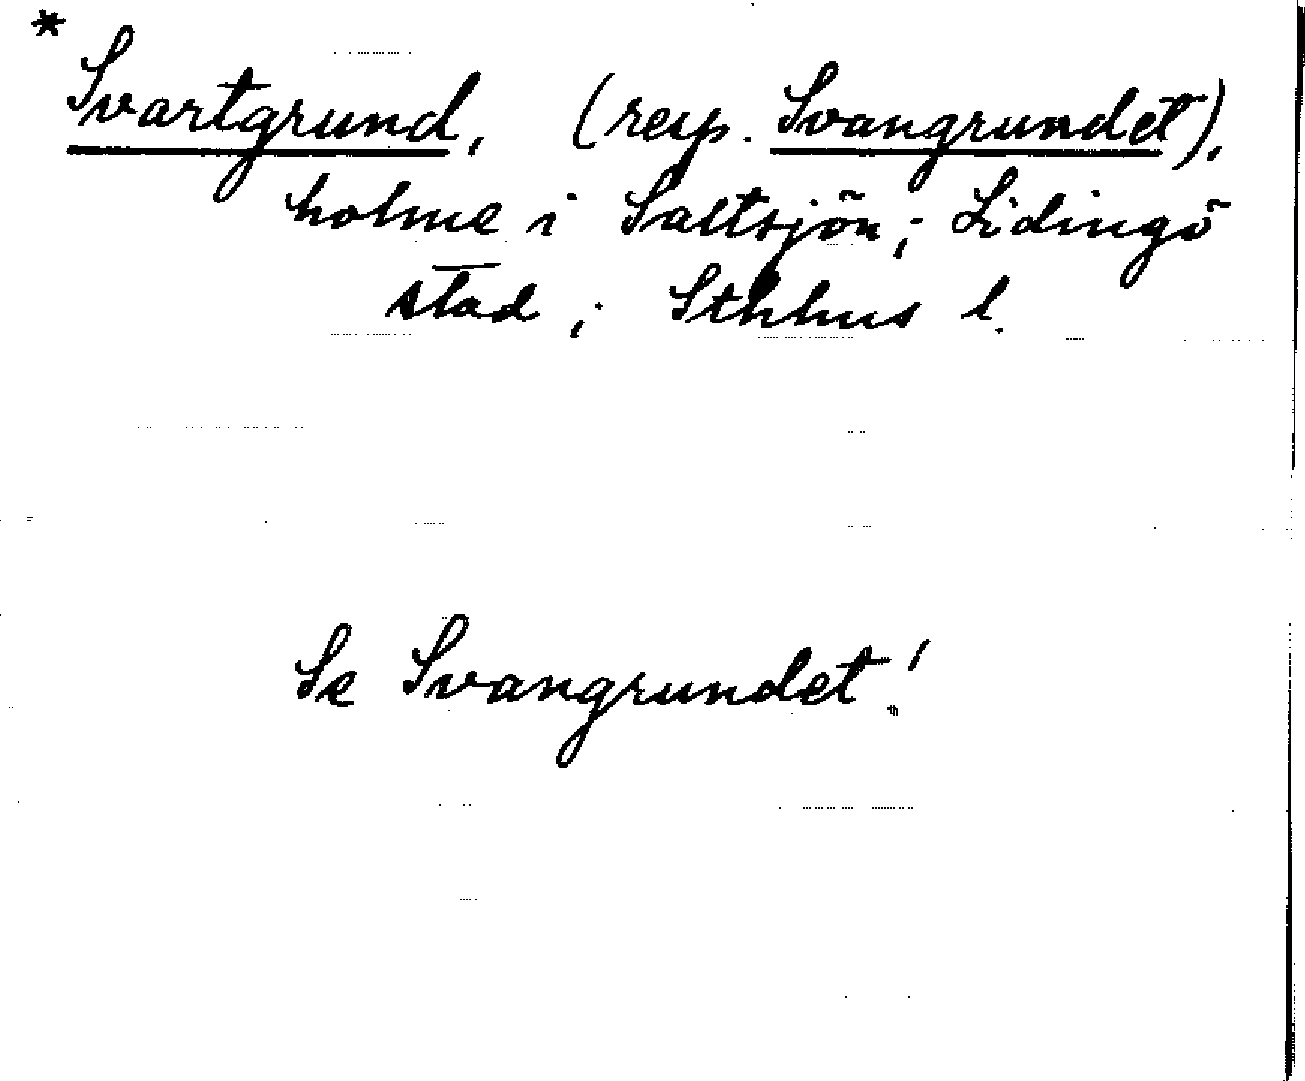 * Svartgrund, (resp. Svangrundet),
holme i Saltsjön; Lidingö
stad; Sthlms l.
Se Svangrundet!